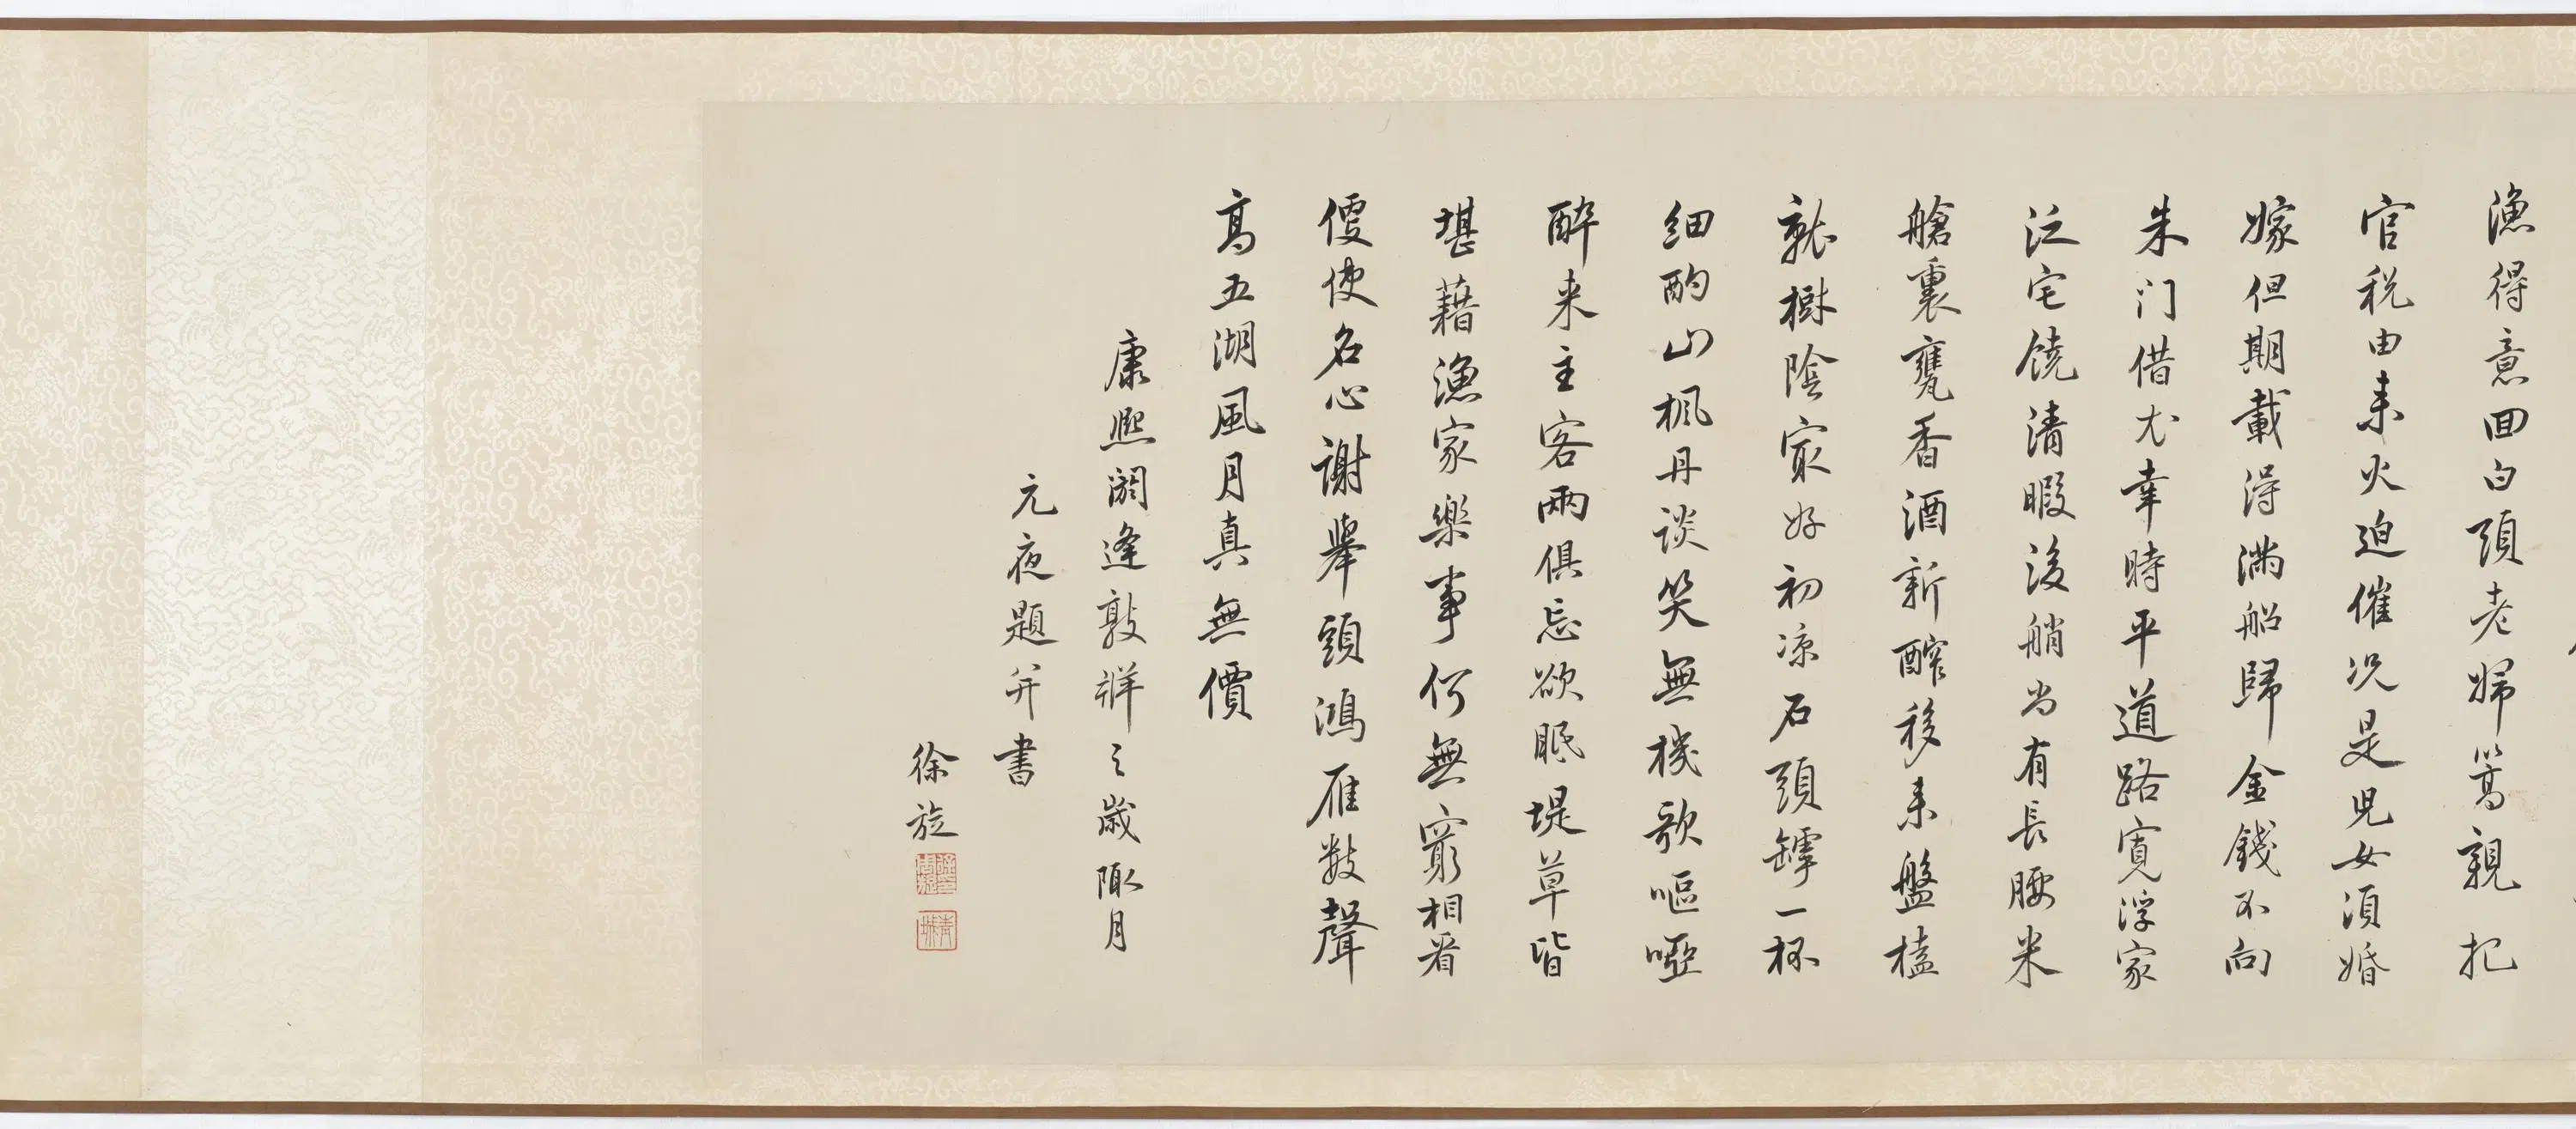 漁得意回白頭老婦篙親把
官税由来火迫催况是児女須婚
嫁但期載得満船歸金錢不向
朱门借尤幸時平道路寛浮家
泛宅饒清暇後艄尚有長腰米
艙裏甕香酒新醡移来盤榼
就樹陰寂好初凉石頭罅一杯
細酌山楓丹談笑無機歌嘔啞
醉来主客兩俱忘欲眠堤草皆
堪藉漁家樂事何無窮相看
便使名心謝舉頭鴻雁数聲
髙五湖風月真無價
康熙閼逢敦牂之歲陬月
元夜題并書
徐旋